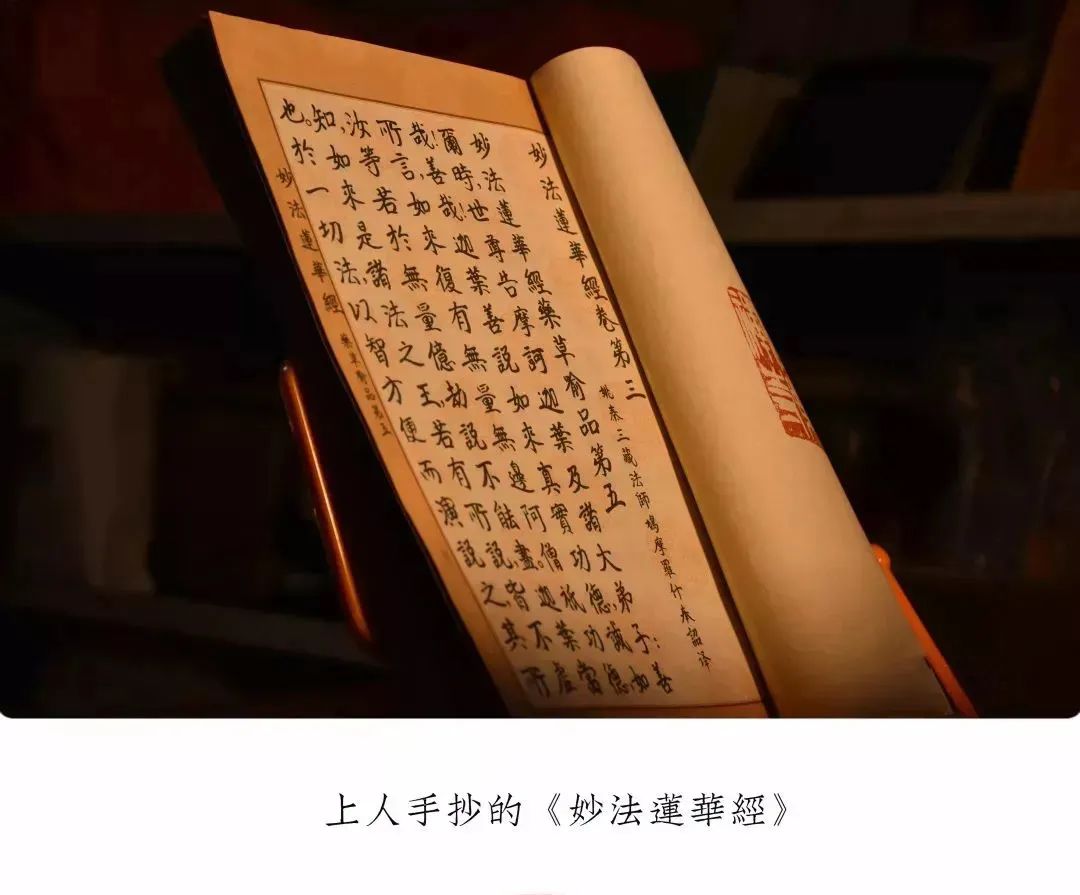 妙法蓮華經卷第三 姚秦三藏法師鳩摩羅什奉詔译
妙法蓮華經藥草喻品第五
爾時,世尊告摩訶迦葉及諸大弟子:善
哉!善哉!迦葉善說如來真實功德,誠如
所言,如來復有無量無邊阿僧祇功德,
汝等若於無量億劫說不能盡。迦葉當
知,如來是諸法之王,若有所說,皆不虛
也。於一切法,以智方便而演說之,其所
妙法蓮華經 藥草喻品第五
上人手抄的《妙法蓮華經》